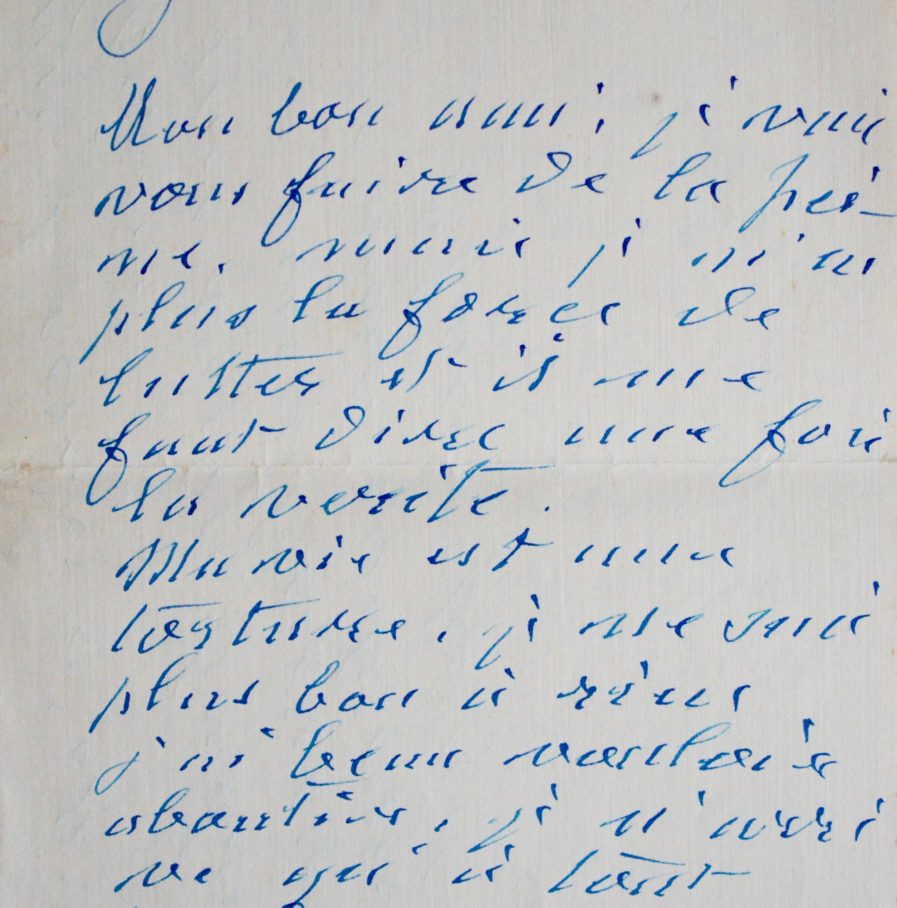 Mon bon ami, je vais
vous faire de la pei-
ne, mais je n'ai
plus la force de
lutter et il me
faut dire une fois
la verité.
Ma vie est une
torture, je ne suis
plus bon à rien,
j'ai beau vouloir
aboutir, je n'arri
ve qu'à tout